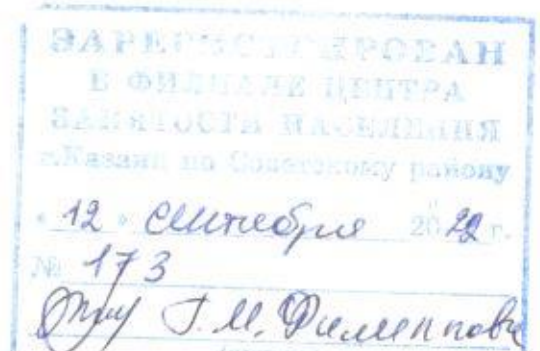 ЗАРЕГИСТРИРОВАН
В ФИЛИАЛЕ ЦЕНТРА
ЗАНЯТОСТИ НАСЕЛЕНИЯ
г.Казани по Советскому району
« 12 » сентября 2022 г.
№ 173
Г. М. Филиппова